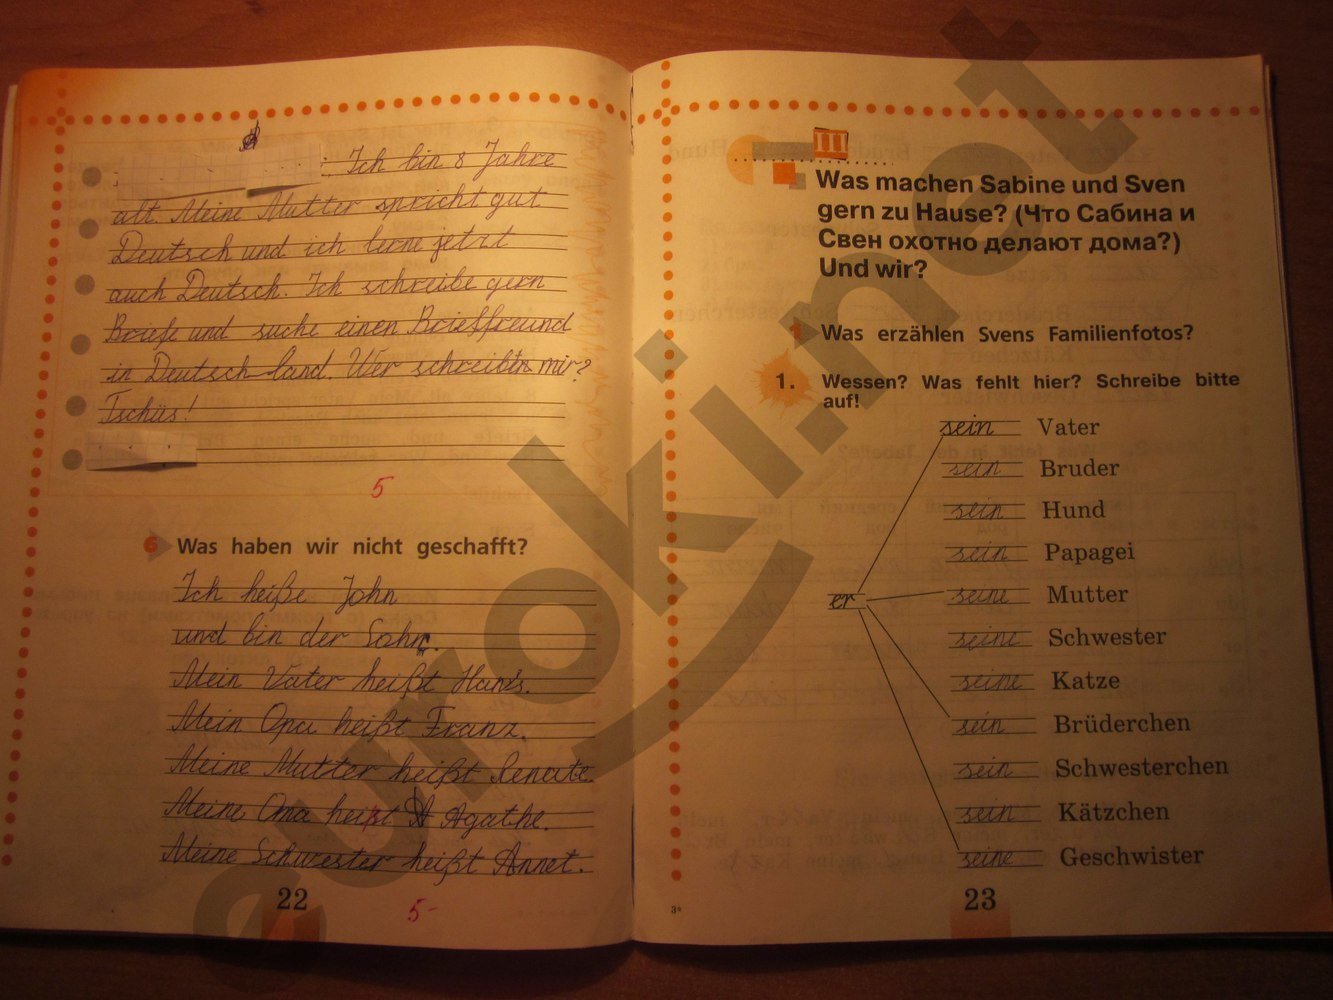 Ich bin 8 Jahre
alt. Meine Mutter spricht gut
Deutsch und ich lerne jetzt
auch Deutsch. Ich schreibe gern
Briefe und suche einen Brieffreund
in Deutsch land. Wer schreibt mir?
Tschüs!
5
6 Was haben wir nicht geschafft?
Ich heiße John
und bin der Sohn.
Mein Vater heißt Hans.
Mein Opa heißt Franz.
Meine Mutter heißt Renate.
Meine Oma heißt Agathe.
Meine Schwester heißt Annet.
22
5-
III
Was machen Sabine und Sven
gern zu Hause? (Что Сабина и
Свен охотно делают дома?)
Und wir?
1 Was erzählen Svens Familienfotos?
1. Wessen? Was fehlt hier? Schreibe bitte
auf!
sein Vater
sein Bruder
sein Hund
sein Papagei
er
seine Mutter
seine Schwester
seine Katze
sein Brüderchen
sein Schwesterchen
sein Kätzchen
seine Geschwister
3*
23
euroki.net